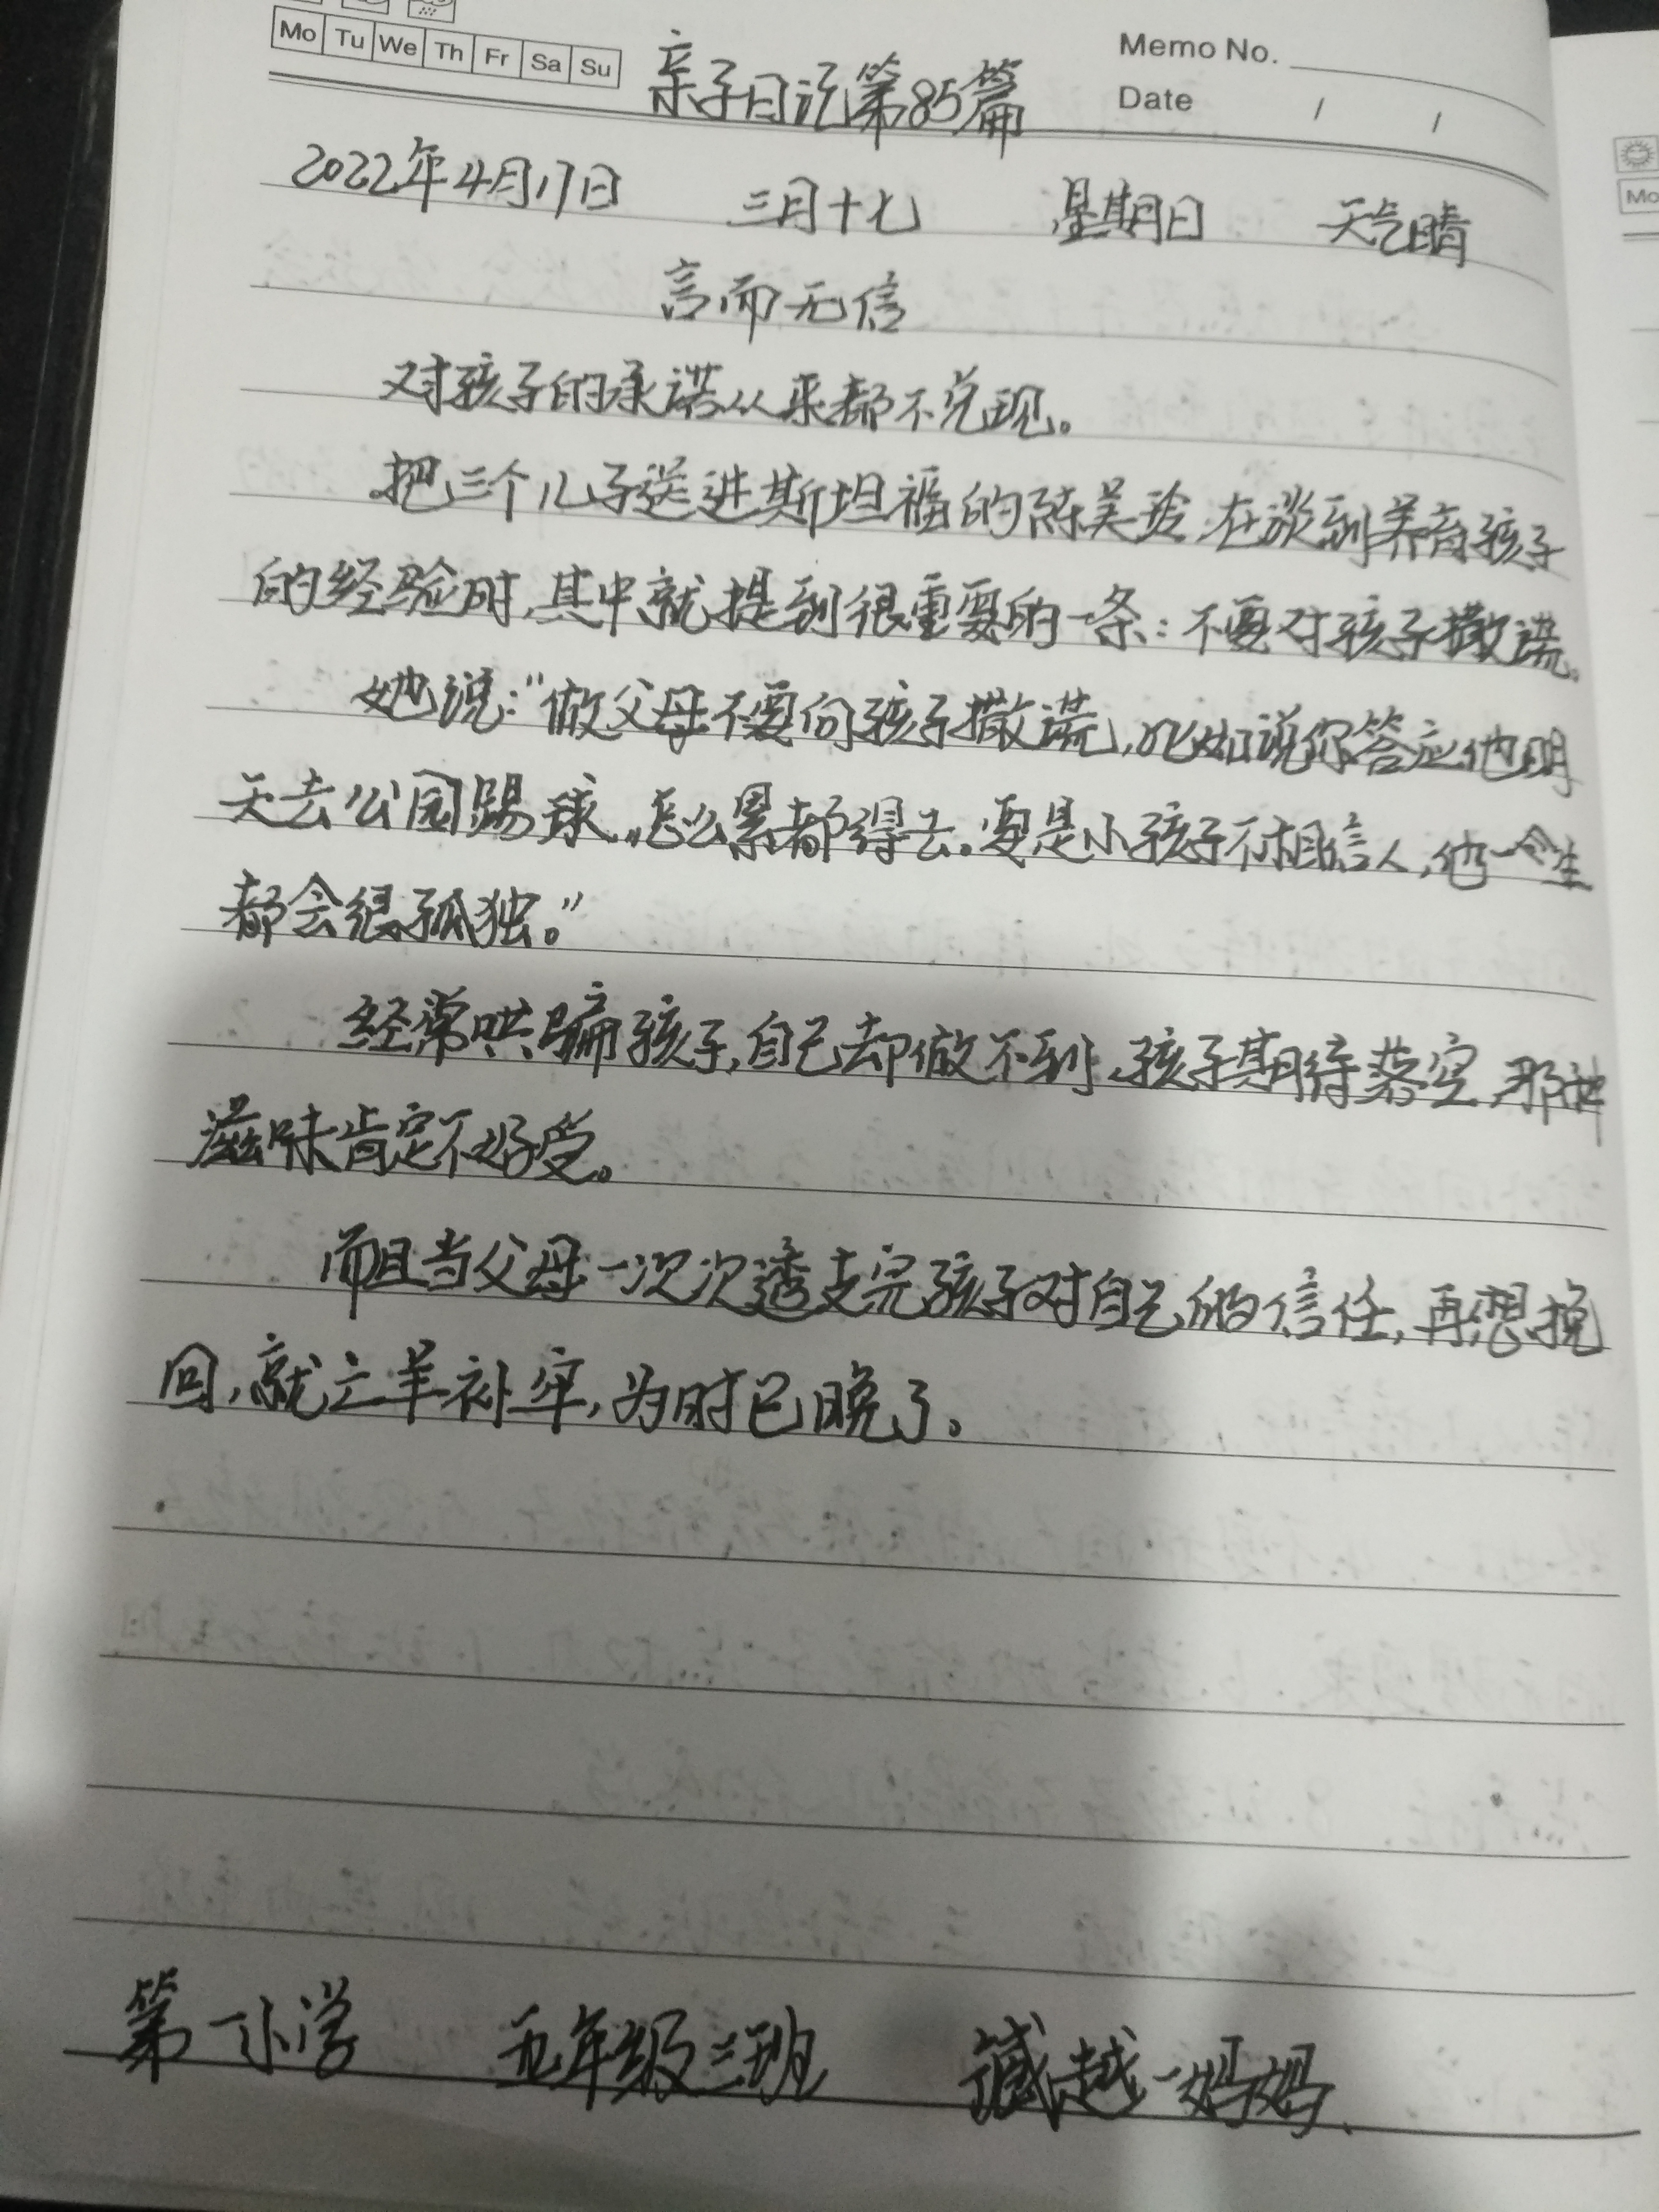 Mo Tu We Th Fr Sa Su
Memo No.
亲子日记第85篇
Date / /
2022年4月17日 三月十七 星期日 天气晴
言而无信
对孩子的承诺从来都不兑现。
把三个儿子送进斯坦福的陈美玲,在谈到养育孩子
的经验时,其中就提到很重要的一条:不要对孩子撒谎。
她说:“做父母不要向孩子撒谎,比如说你答应他明
天去公园踢球,怎么累都得去。要是小孩子不相信人,他一生
都会很孤独。”
经常哄骗孩子,自己却做不到,孩子期待落空,那种
滋味肯定不好受。
而且当父母一次次透支完孩子对自己的信任,再想挽
回,就亡羊补牢,为时已晚了。
第一小学 五年级三班 越一妈妈
Mo